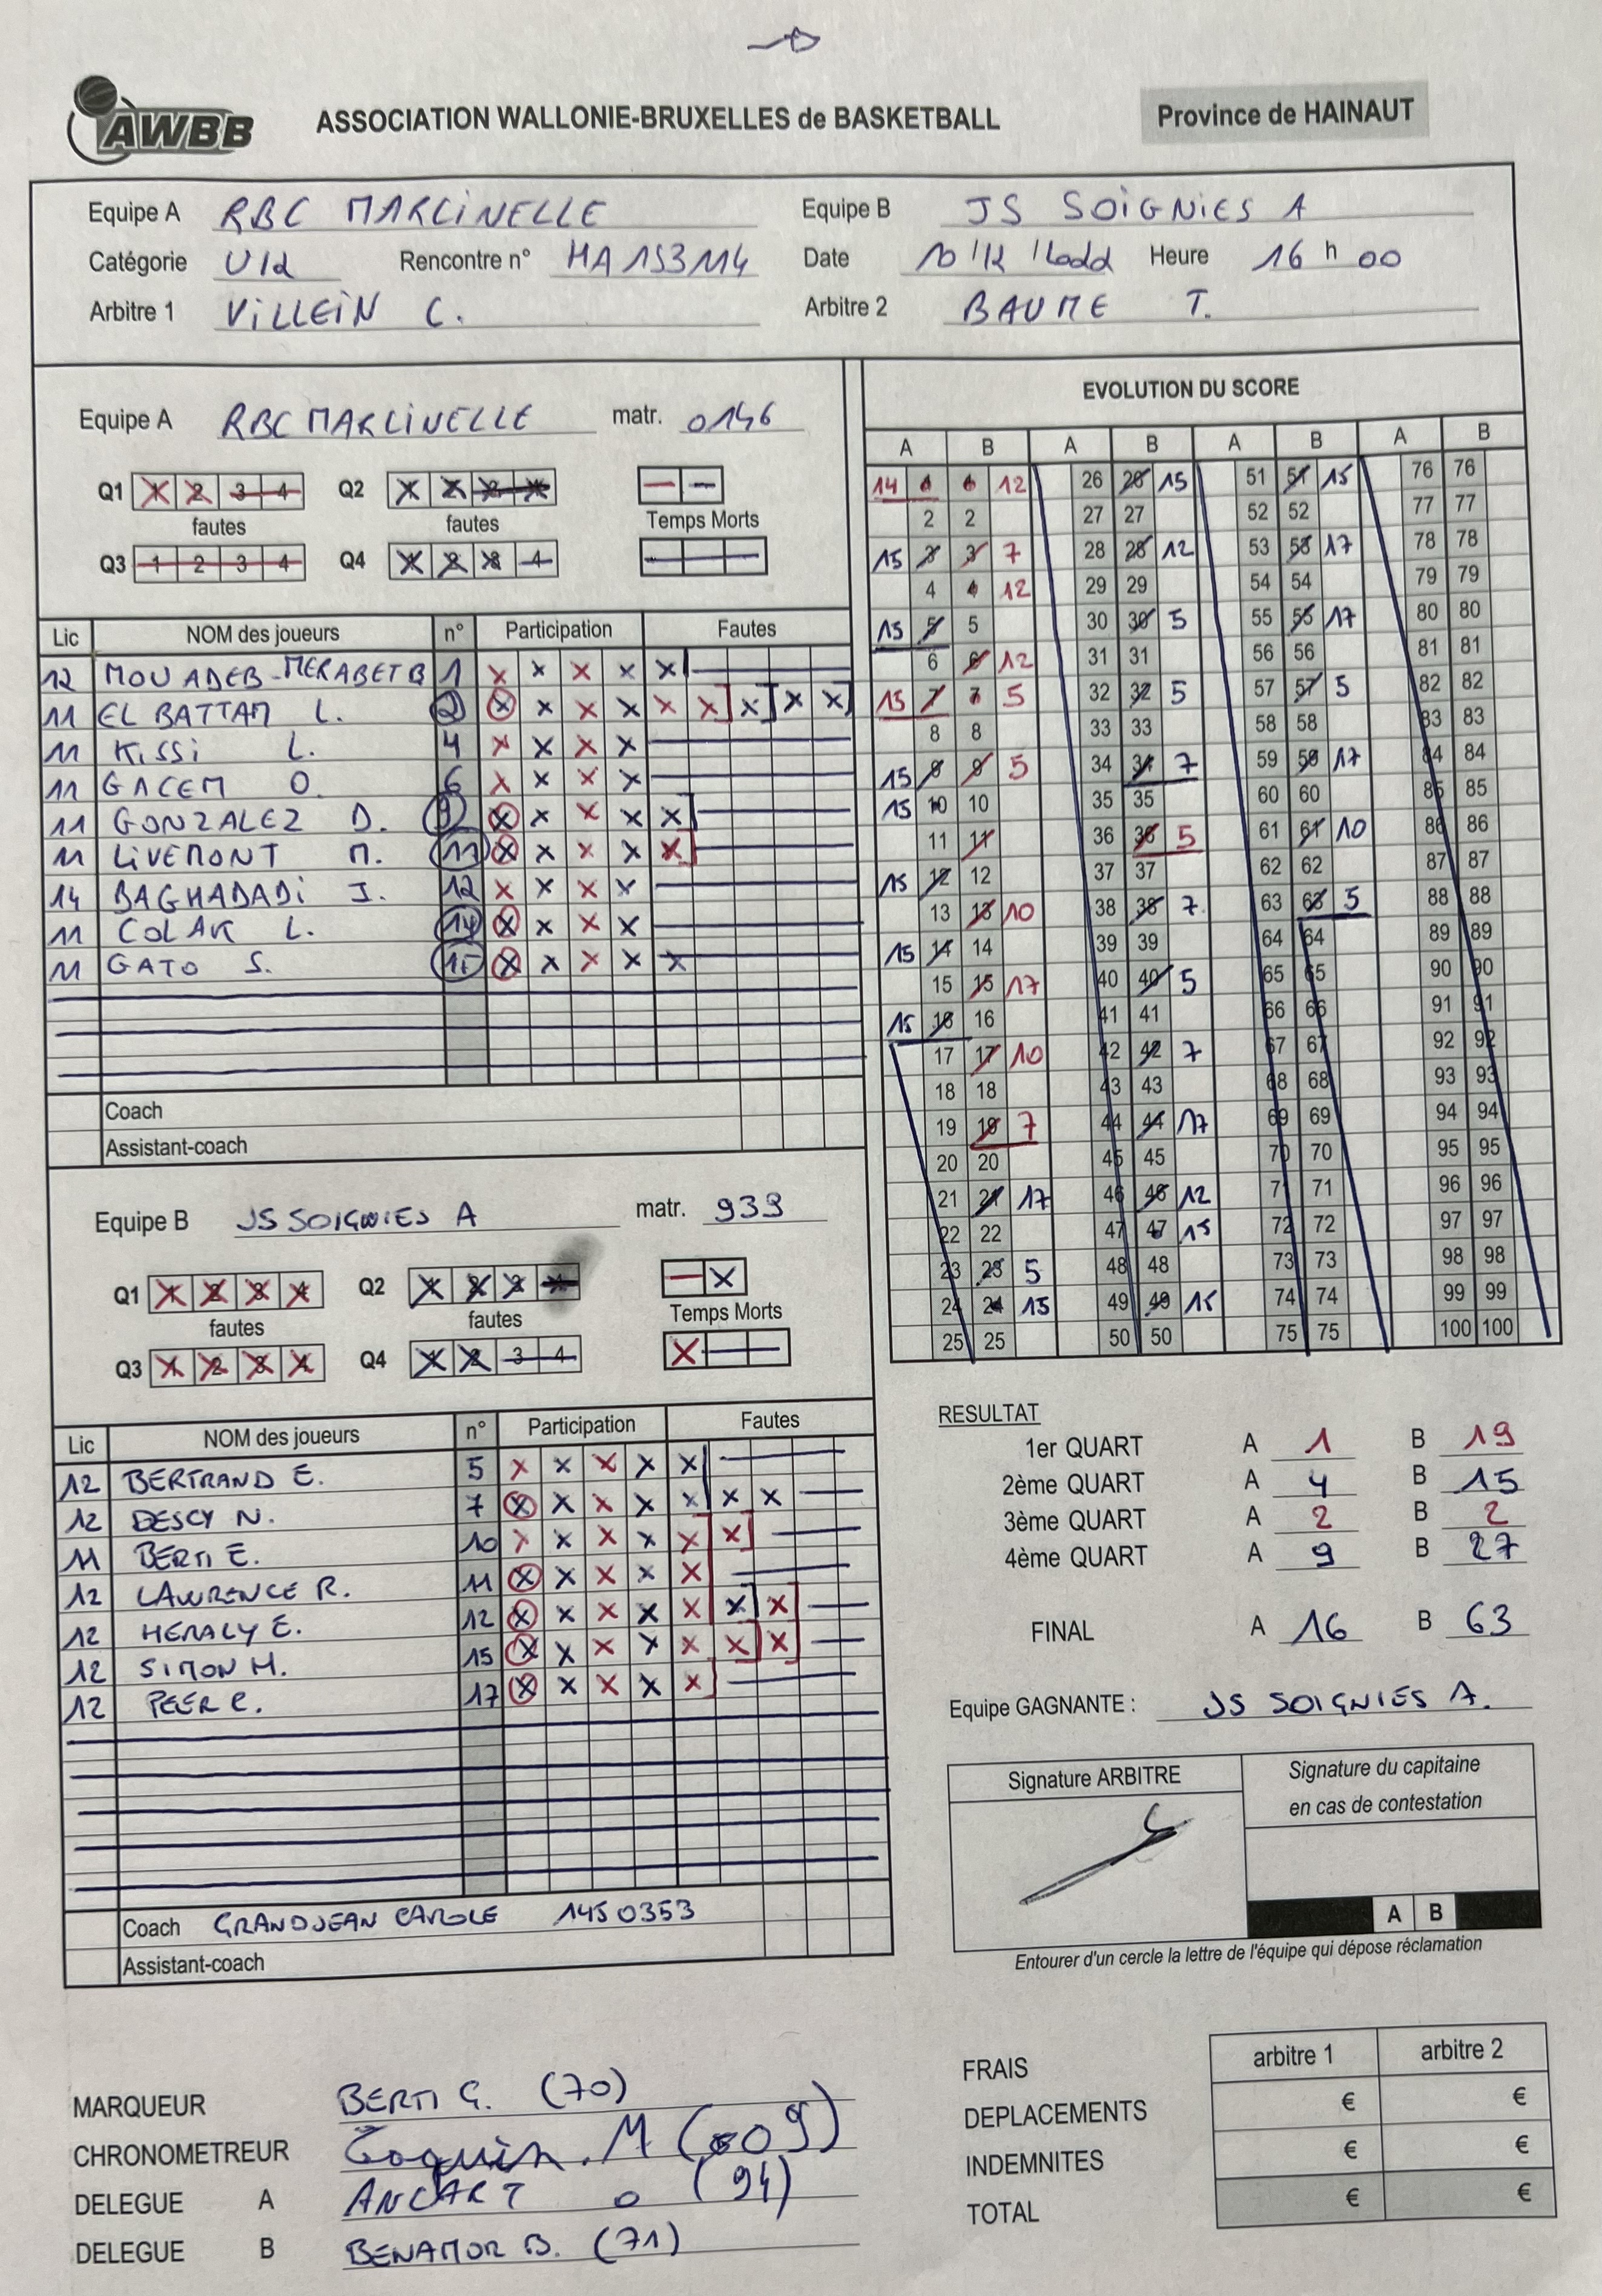 AWBB ASSOCIATION WALLONIE-BRUXELLES de BASKETBALL Province de HAINAUT
Equipe A RBC MARCINELLE Equipe B JS SOIGNIES A
Catégorie U12 Rencontre n° HA153114 Date 10/12/ Heure 16 h 00
Arbitre 1 VILLEIN C. Arbitre 2 BAUME T.
Equipe A RBC MARCINELLE matr. 0146
Q1 1 2 3 4 Q2 1 2 3 4
fautes fautes Temps Morts
Q3 1 2 3 4 Q4 1 2 3 4
Lic NOM des joueurs n° Participation Fautes
12 MOUADEB-MERABET B 1 x x x x x
11 EL BATTAM L. 2 x x x x x x x x x
11 KISSI L. 4 x x x x
11 GACEM O. 6 x x x x
11 GONZALEZ D. 9 x x x x x
11 LIVEMONT M. 11 x x x x x
14 BAGHADADI I. 12 x x x x
11 COLAK L. 14 x x x x
11 GATO S. 15 x x x x x
Coach
Assistant-coach
Equipe B JS SOIGNIES A matr. 939
Q1 1 2 3 4 Q2 1 2 3 4 x
fautes fautes Temps Morts
Q3 1 2 3 4 Q4 1 2 3 4 x
Lic NOM des joueurs n° Participation Fautes
12 BERTRAND E. 5 x x x x x
12 DESCY N. 7 x x x x x x x
11 BERTI E. 10 x x x x x x
12 LAWRENCE R. 11 x x x x x
12 HERALY E. 12 x x x x x x x
12 SIMON M. 15 x x x x x x x
12 PEER C. 17 x x x x x
Coach GRANDJEAN CAROLE 1450353
Assistant-coach
EVOLUTION DU SCORE
A B A B A B A B
14 1 1 12 26 26 15 51 51 15 76 76
2 2 27 27 52 52 77 77
15 3 3 7 28 28 12 53 53 17 78 78
4 4 12 29 29 54 54 79 79
15 5 5 30 30 5 55 55 17 80 80
6 6 12 31 31 56 56 81 81
15 7 7 5 32 32 5 57 57 5 82 82
8 8 33 33 58 58 83 83
15 9 9 5 34 34 7 59 59 17 84 84
15 10 10 35 35 60 60 85 85
11 11 36 36 5 61 61 10 86 86
15 12 12 37 37 62 62 87 87
13 13 10 38 38 7 63 63 5 88 88
15 14 14 39 39 64 64 89 89
15 15 17 40 40 5 65 65 90 90
15 16 16 41 41 66 66 91 91
17 17 10 42 42 7 67 67 92 92
18 18 43 43 68 68 93 93
19 19 7 44 44 17 69 69 94 94
20 20 45 45 70 70 95 95
21 21 17 46 46 12 71 71 96 96
22 22 47 47 15 72 72 97 97
23 23 5 48 48 73 73 98 98
24 24 15 49 49 15 74 74 99 99
25 25 50 50 75 75 100 100
RESULTAT
1er QUART A 1 B 19
2ème QUART A 4 B 15
3ème QUART A 2 B 2
4ème QUART A 9 B 27
FINAL A 16 B 63
Equipe GAGNANTE : JS SOIGNIES A.
Signature ARBITRE Signature du capitaine
en cas de contestation
A B
Entourer d'un cercle la lettre de l'équipe qui dépose réclamation
MARQUEUR BERTI G. (70)
CHRONOMETREUR M
DELEGUE A ANCART O (94)
DELEGUE B BENAMOR B. (71)
arbitre 1 arbitre 2
FRAIS
DEPLACEMENTS € €
INDEMNITES € €
TOTAL € €